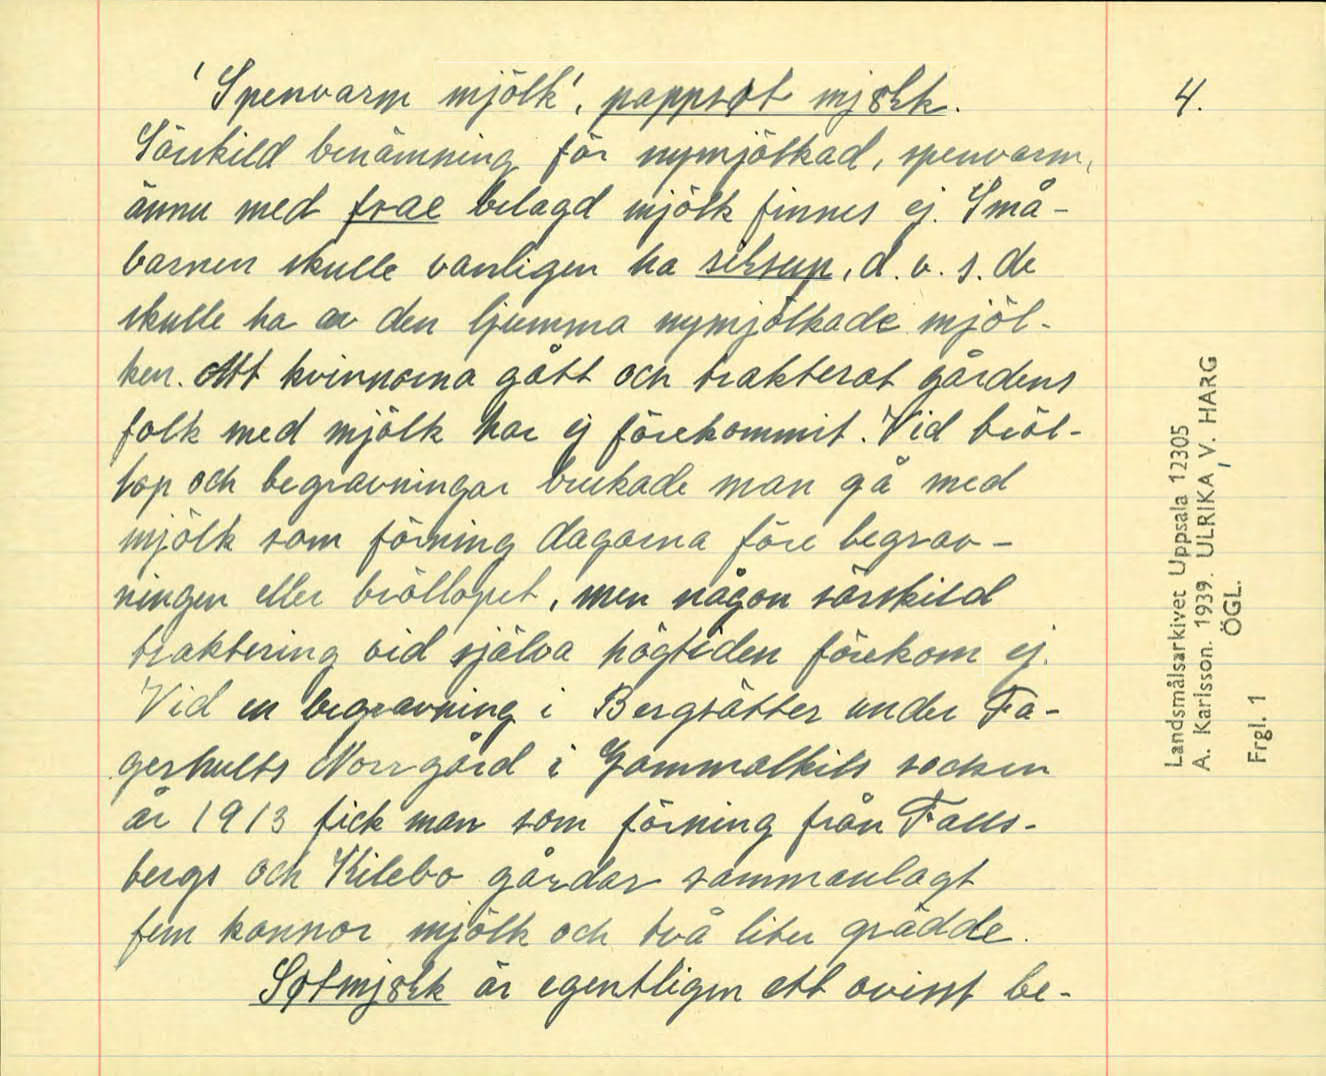 'Spenvarm mjölk', pappsøt mjɷlk.
Särskild benämning för nymjölkad, spenvarm,
ännu med frae belagd mjölk finnes ej. Små-
barnen skulle vanligen ha silsup, d. v. s. de
skulle ha av den ljumma nymjölkade mjöl-
ken. Att kvinnorna gått och trakterat gårdens
folk med mjölk har ej förekommit. Vid bröl-
lop och begravningar brukade man gå med
mjölk som förning dagarna före begrav-
ningen eller bröllopet, men någon särskild
traktering vid själva högtiden förekom ej.
Vid en begravning i Bergsätter under Fa-
gerhults Norrgård i Gammalkils socken
år 1913 fick man som förning från Falls-
bergs och Kilebo gårdar sammanlagt
fem kannor mjölk och två liter grädde.
Søtmjɷlk är egentligen ett ovisst be-
4.
Landsmålsarkivet Uppsala 12305
A. Karlsson. 1939. ULRIKA, V. HARG
ÖGL.
Frgl. 1